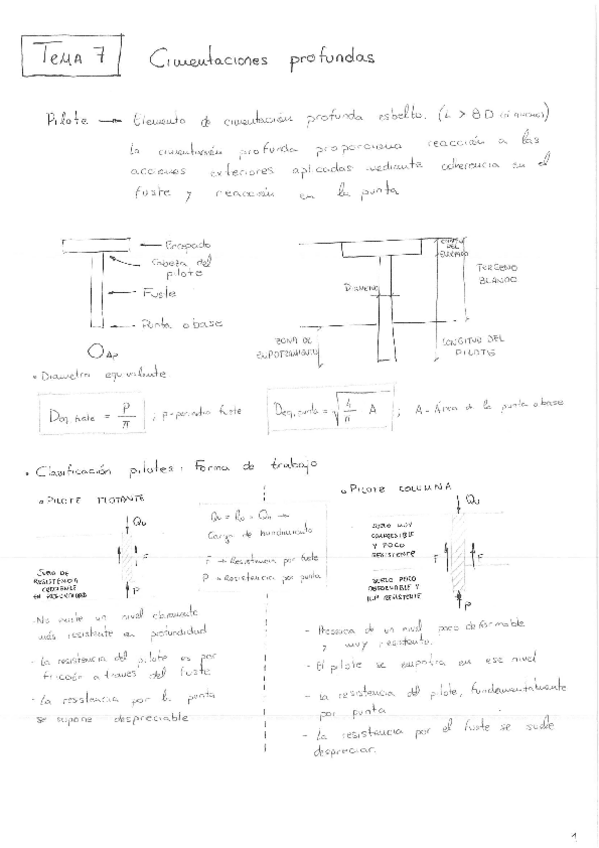 TEMA 7 Cimentaciones profundas
Pilote → Elemento de cimentación profunda esbelto. (L > 8D)
La cimentación profunda proporciona reacción a las
acciones exteriores aplicadas mediante adherencia en el
fuste y reacción en la punta
Encepado
Cabeza del
pilote
Fuste
Punta o base
Ap
DIÁMETRO
TERRENO
BLANDO
ZONA DE
EMPOTRAMIENTO
LONGITUD DEL
PILOTE
• Diámetro equivalente
Deq, fuste = P/π ; p - perímetro fuste
Deq, punta = √(4/π A) ; A - Área de la punta o base
• Clasificación pilotes: Forma de trabajo
PILOTE FLOTANTE
Qu
F
P
SUELO DE
RESISTENCIA
CRECIENTE
EN PROFUNDIDAD
- No existe un nivel claramente
más resistente en profundidad
- La resistencia del pilote es por
fricción a través del fuste
- La resistencia por la punta
se supone despreciable
Carga de hundimiento
F → Resistencia por fuste
P → Resistencia por punta
PILOTE COLUMNA
Qu
SUELO MUY
COMPRESIBLE
Y POCO
RESISTENTE
F
F
SUELO POCO
DEFORMABLE Y
MUY RESISTENTE
P
- Presencia de un nivel poco deformable
y muy resistente.
- El pilote se empotra en ese nivel
- La resistencia del pilote, fundamentalmente
por punta
- La resistencia por el fuste se suele
despreciar.
1